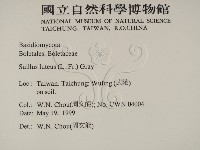 國立自然科學博物館
NATIONAL MUSEUM OF NATURAL SCIENCE
TAICHUNG, TAIWAN, R.O.CHINA
Basidiomycota
Boletales, Boletaceae
Suillus luteus (L.:Fr.) Gray
Loc.: Taiwan, Taichung, Wufing
on soil.
Col.: W.N. Chou(周文能); No. CWN 04004
Date: May 19, 1999
Det.: W.N. Chou(周文能)